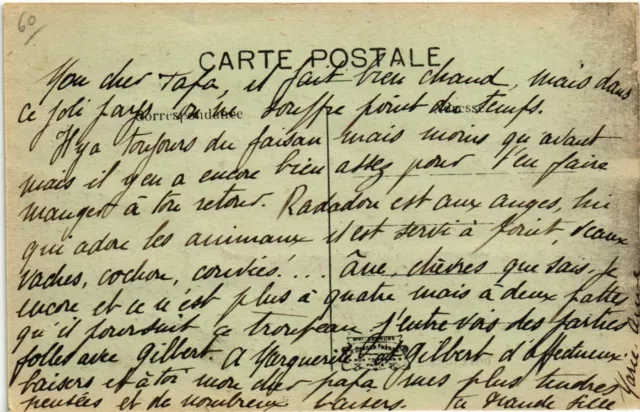 60/
CARTE POSTALE
Correspondance
Adresse
Mon cher Papa, il fait bien chaud, mais dans
ce joli pays on ne souffre point du temps.
Il y a toujours du faisan mais moins qu'avant
mais il y en a encore bien assez pour t'en faire
manger à ton retour. Radadou est aux anges, lui
qui adore les animaux il est servi à point, veaux
vaches, cochon, couvées!.... Âne, chèvres que sais-je
encore et ce n'est plus à quatre mais à deux pattes
qu'il poursuit ce troupeau. J'entrevois des parties
folles avec Gilbert. A Marguerite et Gilbert d'affectueux
baisers et à toi mon cher papa mes plus tendres
pensées et de nombreux baisers. Ta grande fille